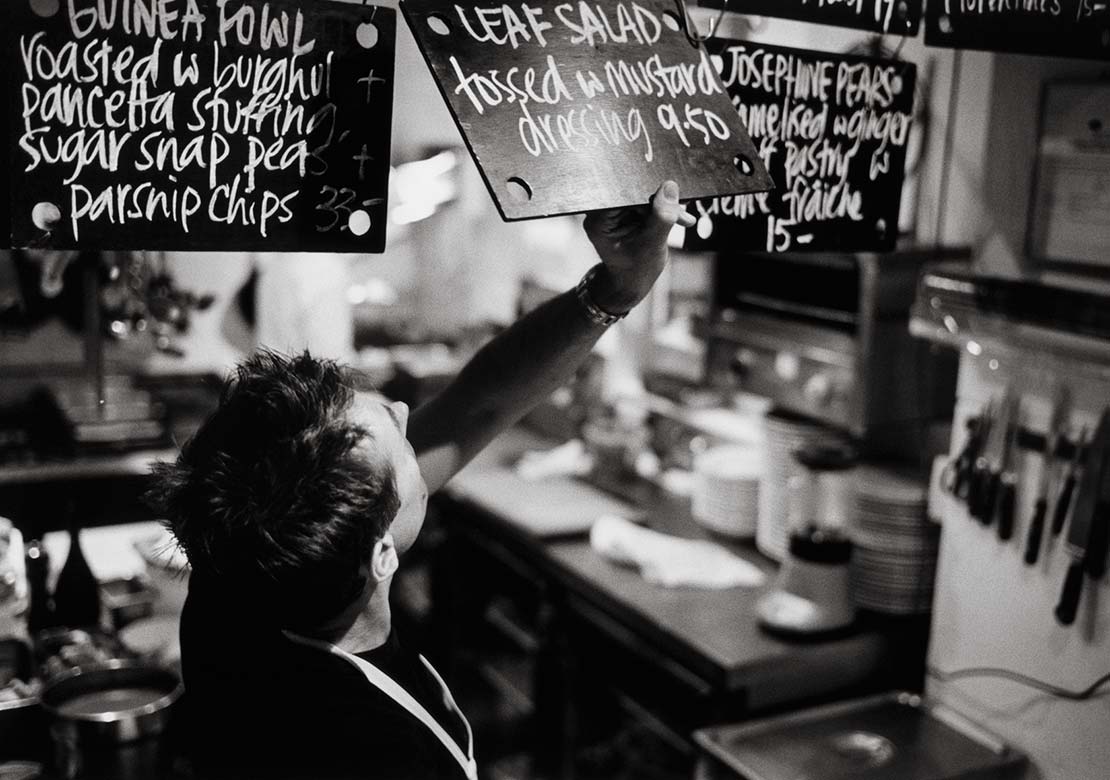 GUINEA FOWL
roasted w burghul
pancetta stuffing
sugar snap pea
parsnip chips 33-
LEAF SALAD
tossed w mustard
dressing 9.50
JOSEPHINE PEARS
melised w ginger
pastry w
creme fraiche
15-